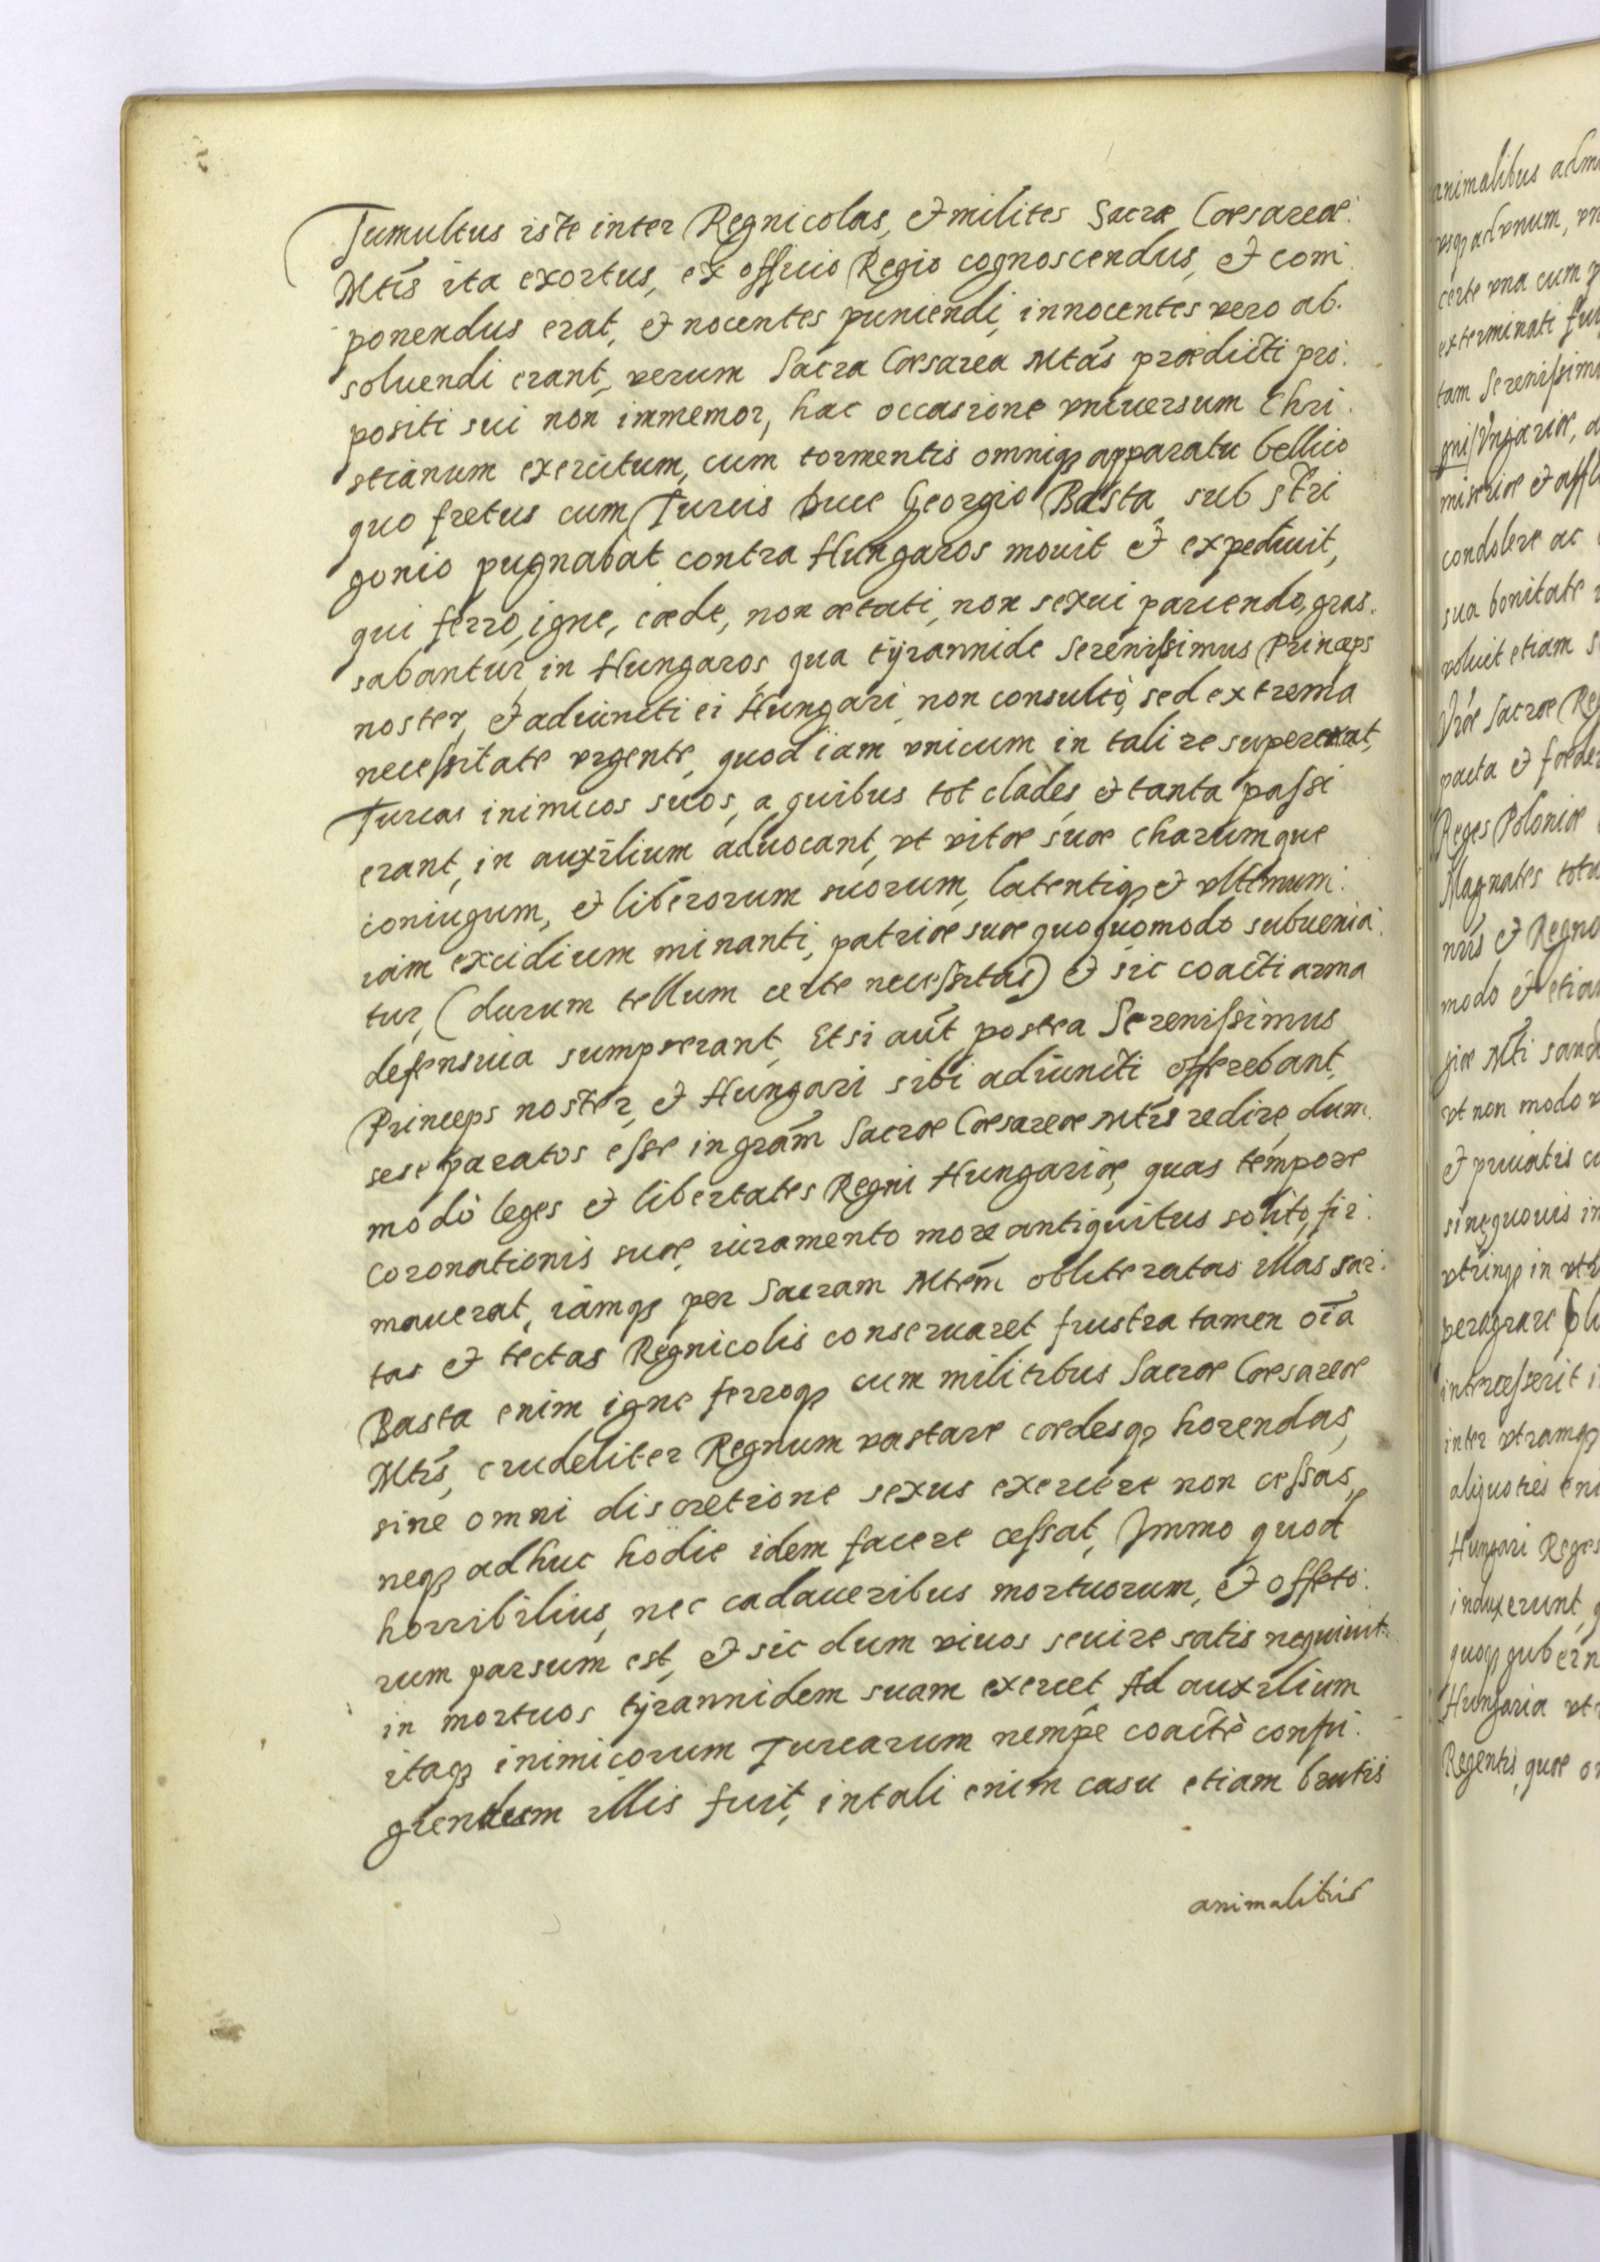 Tumultus iste inter Regnicolas, et milites Sacræ Cæsareæ
Mtis ita exortus, ex officio Regio cognoscendus, et com
ponendus erat, et nocentes puniendi, innocentes vero ab
soluendi erant, verum Sacra Cæsarea Mtas prædicti pro
positi sui non immemor, hac occasione vniuersum Chri
stianum exercitum, cum tormentis omniq; apparatu bellico
quo fretus cum Turcis Duce Georgio Basta sub Stri
gonio pugnabat contra Hungaros mouit et expediuit,
qui ferro, igne, cæde, non ætati, non sexui parcendo, gras
sabantur in Hungaros, qua tÿrannide Serenissimus Princeps
noster, et adiuncti ei Hungari non consultò, sed extrema
necessitate vrgente, quod iam vnicum in tali re supererat,
Turcas inimicos suos, a quibus tot clades, et tanta passi
erant, in auxilium aduocant, vt vitæ suæ charumque
coniugum, et liberorum suorum, latentiq; et vltimum
iam excidium minanti, patriæ suæ quoquomodo subuenia
tur, (durum tellum certe necessitas) et sic coacti arma
defensiua sumpserant, Etsi aut postea Serenissimus
Princeps noster, et Hungari sibi adiuncti offerebant,
sese paratos esse in gram Sacræ Cæsareæ Mtis redire, dum
modò leges et libertates Regni Hungariæ, quas tempore
coronationis suæ, iuramento more antiquitus solito, fir
mauerat, iamq; per Sacram Mtem obliteratas illas sar
tas et tectas Regnicolis conseruaret frustra tamen oia
Basta enim igne ferroq; cum militibus Sacræ Cæsareæ
Mtis, crudeliter Regnum vastare cædesq; horendas,
sine omni discretione sexus exercere non cessas,
neq; adhuc hodie idem facere cessat, Immo quod
horribilius, nec cadaueribus mortuorum, et offeto
rum parsum est, et sic dum viuos seuire satis nequiuit
in mortuos tÿrannidem suam exercet Ad auxilium
itaq; inimicorum Turcarum nempe coactè confu
giendum illis fuit, in tali enim casu etiam brutis
animalibus
animalibus
vsq; ad vnum,
certe vna cum
exterminati
tam Serenissim
gni Vngariæ,
miseriæ et
condolere ac
sua bonitate
voluit etiam
Vræ Sacræ
pacta et
Reges Poloniæ
Magnates
nris et Regno
modo et
giæ Mti
vt non modo
et priuatis
sineq;uouis
vtrinq; in
peragrare
intercesserit
inter vtramq;
aliquoties
Hungari Reges
induxerunt,
quoq; gubern
Hungaria
Regentis, quæ